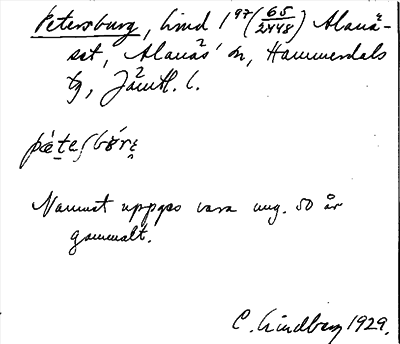 Petersburg, lind 1⁹⁷ (65/2448) Alanäs-
sat, Alanäs' sn, Hammerdals
tg, Jämtl. l.
pæ̀teʃbórɛ
Namnet uppges vara ung. 50 år
gammalt.
C. Lindberg 1929.